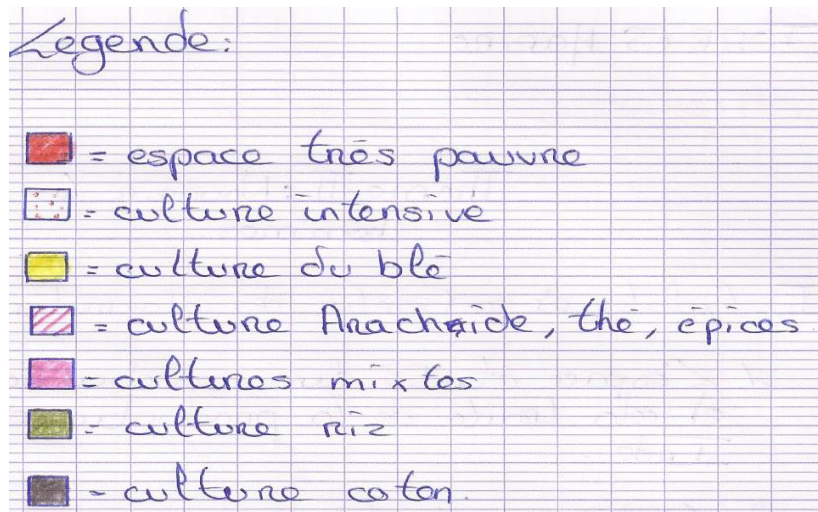 Legende:
= espace très pauvre
= culture intensive
= culture du blé
= culture Arachide, thé, épices
= cultures mixtes
= culture riz
- culture coton.